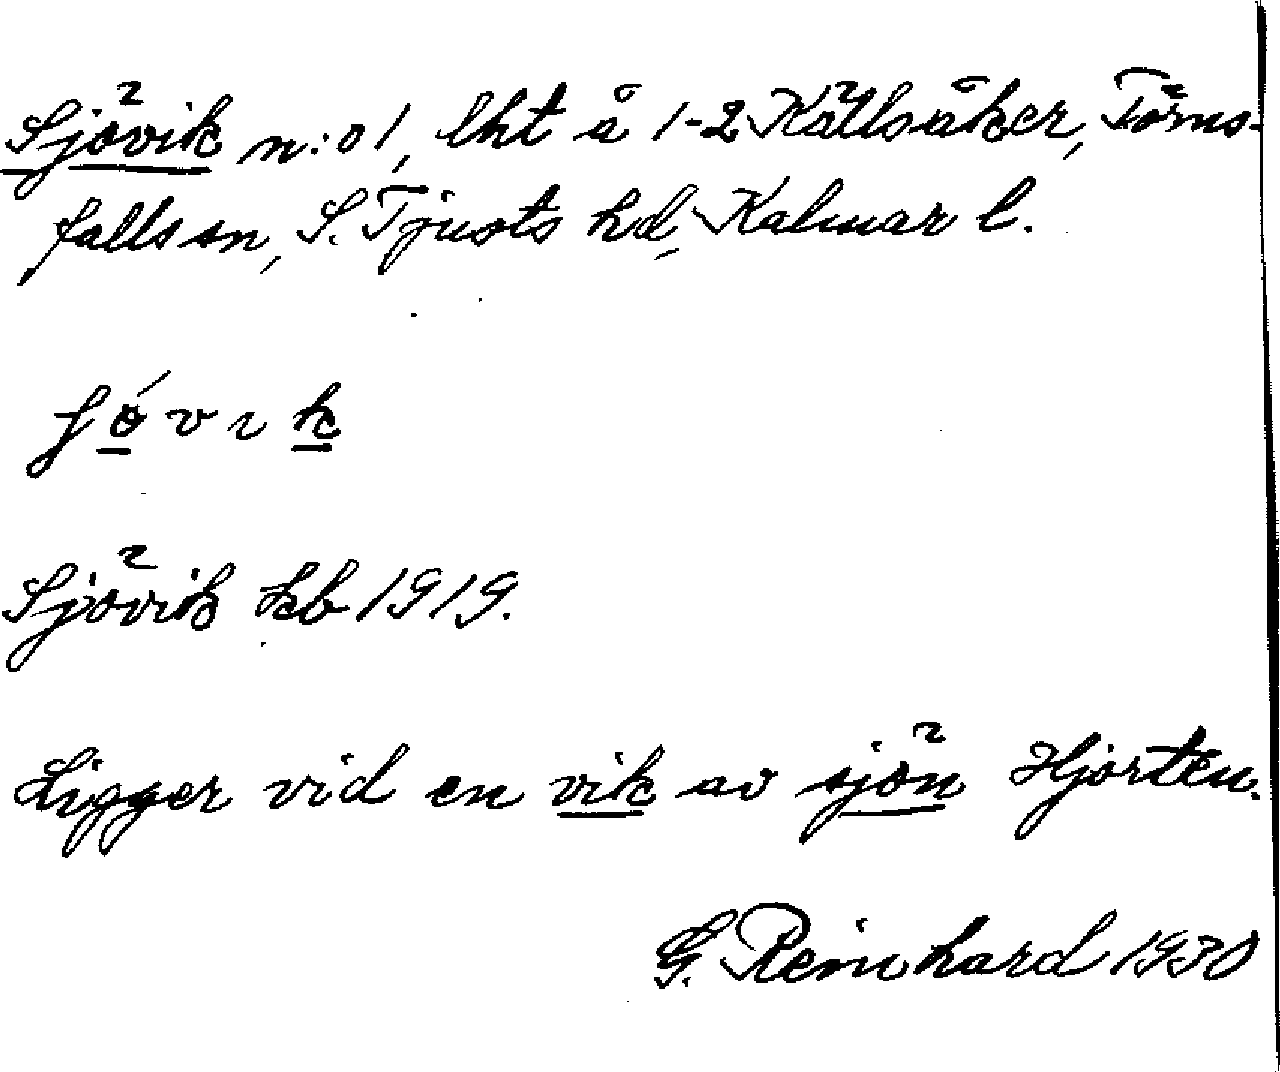 Sjövik n:o 1, lht å 1-2 Källsåker, Törns-
falls sn, S. Tjusts hd, Kalmar l.
ʃǿvık
Sjövik kb 1919.
Ligger vid en vik av sjön Hjorten.
G. Reinhard 1930